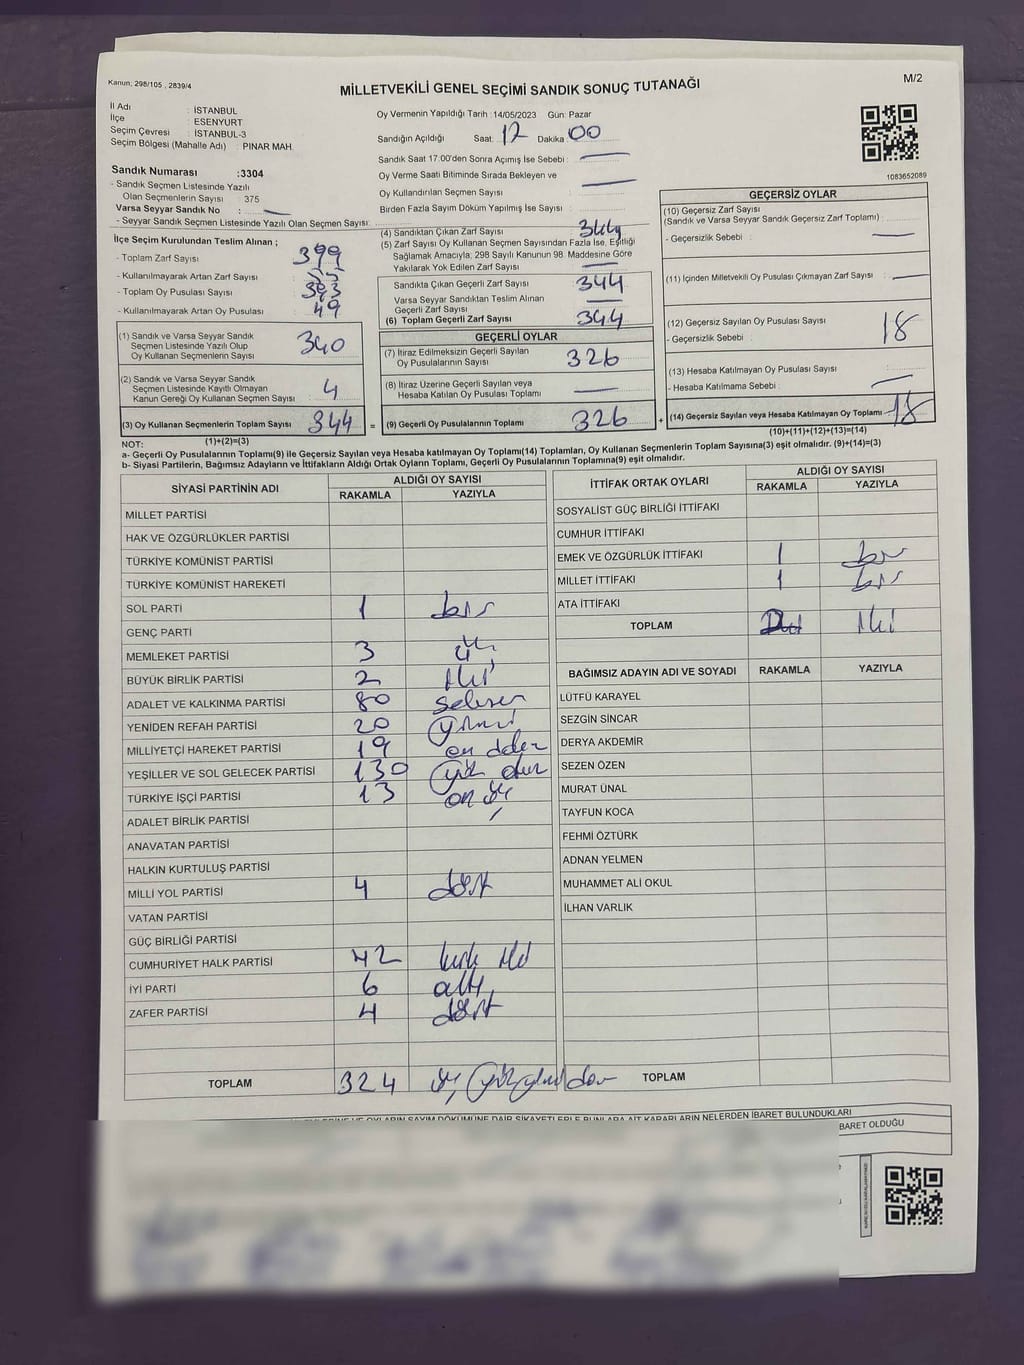 Kanun; 298/105 , 2839/4
MİLLETVEKİLİ GENEL SEÇİMİ SANDIK SONUÇ TUTANAĞI
M/2
İl Adı : İSTANBUL
İlçe : ESENYURT
Seçim Çevresi : İSTANBUL-3
Seçim Bölgesi (Mahalle Adı) : PINAR MAH.
Sandık Numarası :3304
- Sandık Seçmen Listesinde Yazılı
Olan Seçmenlerin Sayısı : 375
Varsa Seyyar Sandık No :
- Seyyar Sandık Seçmen Listesinde Yazılı Olan Seçmen Sayısı:
İlçe Seçim Kurulundan Teslim Alınan ;
- Toplam Zarf Sayısı : 399
- Kullanılmayarak Artan Zarf Sayısı :
- Toplam Oy Pusulası Sayısı : 393
- Kullanılmayarak Artan Oy Pusulası : 49
(1) Sandık ve Varsa Seyyar Sandık
Seçmen Listesinde Yazılı Olup
Oy Kullanan Seçmenlerin Sayısı : 340
(2) Sandık ve Varsa Seyyar Sandık
Seçmen Listesinde Kayıtlı Olmayan
Kanun Gereği Oy Kullanan Seçmen Sayısı : 4
(3) Oy Kullanan Seçmenlerin Toplam Sayısı : 344 =
(1)+(2)=(3)
Oy Vermenin Yapıldığı Tarih : 14/05/2023 Gün: Pazar
Sandığın Açıldığı Saat: 17 Dakika: 00
Sandık Saat 17:00'den Sonra Açımış İse Sebebi :
Oy Verme Saati Bitiminde Sırada Bekleyen ve
Oy Kullandırılan Seçmen Sayısı :
Birden Fazla Sayım Döküm Yapılmış İse Sayısı :
(4) Sandıktan Çıkan Zarf Sayısı : 344
(5) Zarf Sayısı Oy Kullanan Seçmen Sayısından Fazla İse, Eşitliği
Sağlamak Amacıyla; 298 Sayılı Kanunun 98. Maddesine Göre
Yakılarak Yok Edilen Zarf Sayısı :
Sandıkta Çıkan Geçerli Zarf Sayısı : 344
Varsa Seyyar Sandıktan Teslim Alınan
Geçerli Zarf Sayısı :
(6) Toplam Geçerli Zarf Sayısı : 344
GEÇERLİ OYLAR
(7) İtiraz Edilmeksizin Geçerli Sayılan
Oy Pusulalarının Sayısı : 326
(8) İtiraz Üzerine Geçerli Sayılan veya
Hesaba Katılan Oy Pusulası Toplamı :
(9) Geçerli Oy Pusulalarının Toplamı : 326 +
1083652089
GEÇERSİZ OYLAR
(10) Geçersiz Zarf Sayısı
(Sandık ve Varsa Seyyar Sandık Geçersiz Zarf Toplamı) :
- Geçersizlik Sebebi :
(11) İçinden Milletvekili Oy Pusulası Çıkmayan Zarf Sayısı :
(12) Geçersiz Sayılan Oy Pusulası Sayısı : 18
- Geçersizlik Sebebi :
(13) Hesaba Katılmayan Oy Pusulası Sayısı :
- Hesaba Katılmama Sebebi :
(14) Geçersiz Sayılan veya Hesaba Katılmayan Oy Toplamı : 18
(10)+(11)+(12)+(13)=(14)
NOT:
a- Geçerli Oy Pusulalarının Toplamı(9) ile Geçersiz Sayılan veya Hesaba katılmayan Oy Toplamı(14) Toplamları, Oy Kullanan Seçmenlerin Toplam Sayısına(3) eşit olmalıdır. (9)+(14)=(3)
b- Siyasi Partilerin, Bağımsız Adayların ve İttifakların Aldığı Ortak Oyların Toplamı, Geçerli Oy Pusulalarının Toplamına(9) eşit olmalıdır.
SİYASİ PARTİNİN ADI ALDIĞI OY SAYISI
RAKAMLA YAZIYLA
MİLLET PARTİSİ
HAK VE ÖZGÜRLÜKLER PARTİSİ
TÜRKİYE KOMÜNİST PARTİSİ
TÜRKİYE KOMÜNİST HAREKETİ
SOL PARTİ 1 bir
GENÇ PARTİ
MEMLEKET PARTİSİ 3 üç
BÜYÜK BİRLİK PARTİSİ 2 iki
ADALET VE KALKINMA PARTİSİ 80 seksen
YENİDEN REFAH PARTİSİ 20 yirmi
MİLLİYETÇİ HAREKET PARTİSİ 19 on dokuz
YEŞİLLER VE SOL GELECEK PARTİSİ 130 yüz otuz
TÜRKİYE İŞÇİ PARTİSİ 13 on üç
ADALET BİRLİK PARTİSİ
ANAVATAN PARTİSİ
HALKIN KURTULUŞ PARTİSİ
MİLLİ YOL PARTİSİ 4 dört
VATAN PARTİSİ
GÜÇ BİRLİĞİ PARTİSİ
CUMHURİYET HALK PARTİSİ 42 kırk iki
İYİ PARTİ 6 altı
ZAFER PARTİSİ 4 dört
TOPLAM 324 üç yüz yirmi dört
İTTİFAK ORTAK OYLARI ALDIĞI OY SAYISI
RAKAMLA YAZIYLA
SOSYALİST GÜÇ BİRLİĞİ İTTİFAKI
CUMHUR İTTİFAKI
EMEK VE ÖZGÜRLÜK İTTİFAKI 1 bir
MİLLET İTTİFAKI 1 bir
ATA İTTİFAKI
TOPLAM iki
BAĞIMSIZ ADAYIN ADI VE SOYADI RAKAMLA YAZIYLA
LÜTFÜ KARAYEL
SEZGİN SİNCAR
DERYA AKDEMİR
SEZEN ÖZEN
MURAT ÜNAL
TAYFUN KOCA
FEHMİ ÖZTÜRK
ADNAN YELMEN
MUHAMMET ALİ OKUL
İLHAN VARLIK
TOPLAM
OYLARIN SAYIM DÖKÜMÜNE DAİR ŞİKAYETLERLE BUNLARA AİT KARARLARIN NELERDEN İBARET BULUNDUKLARI
BARET OLDUĞU